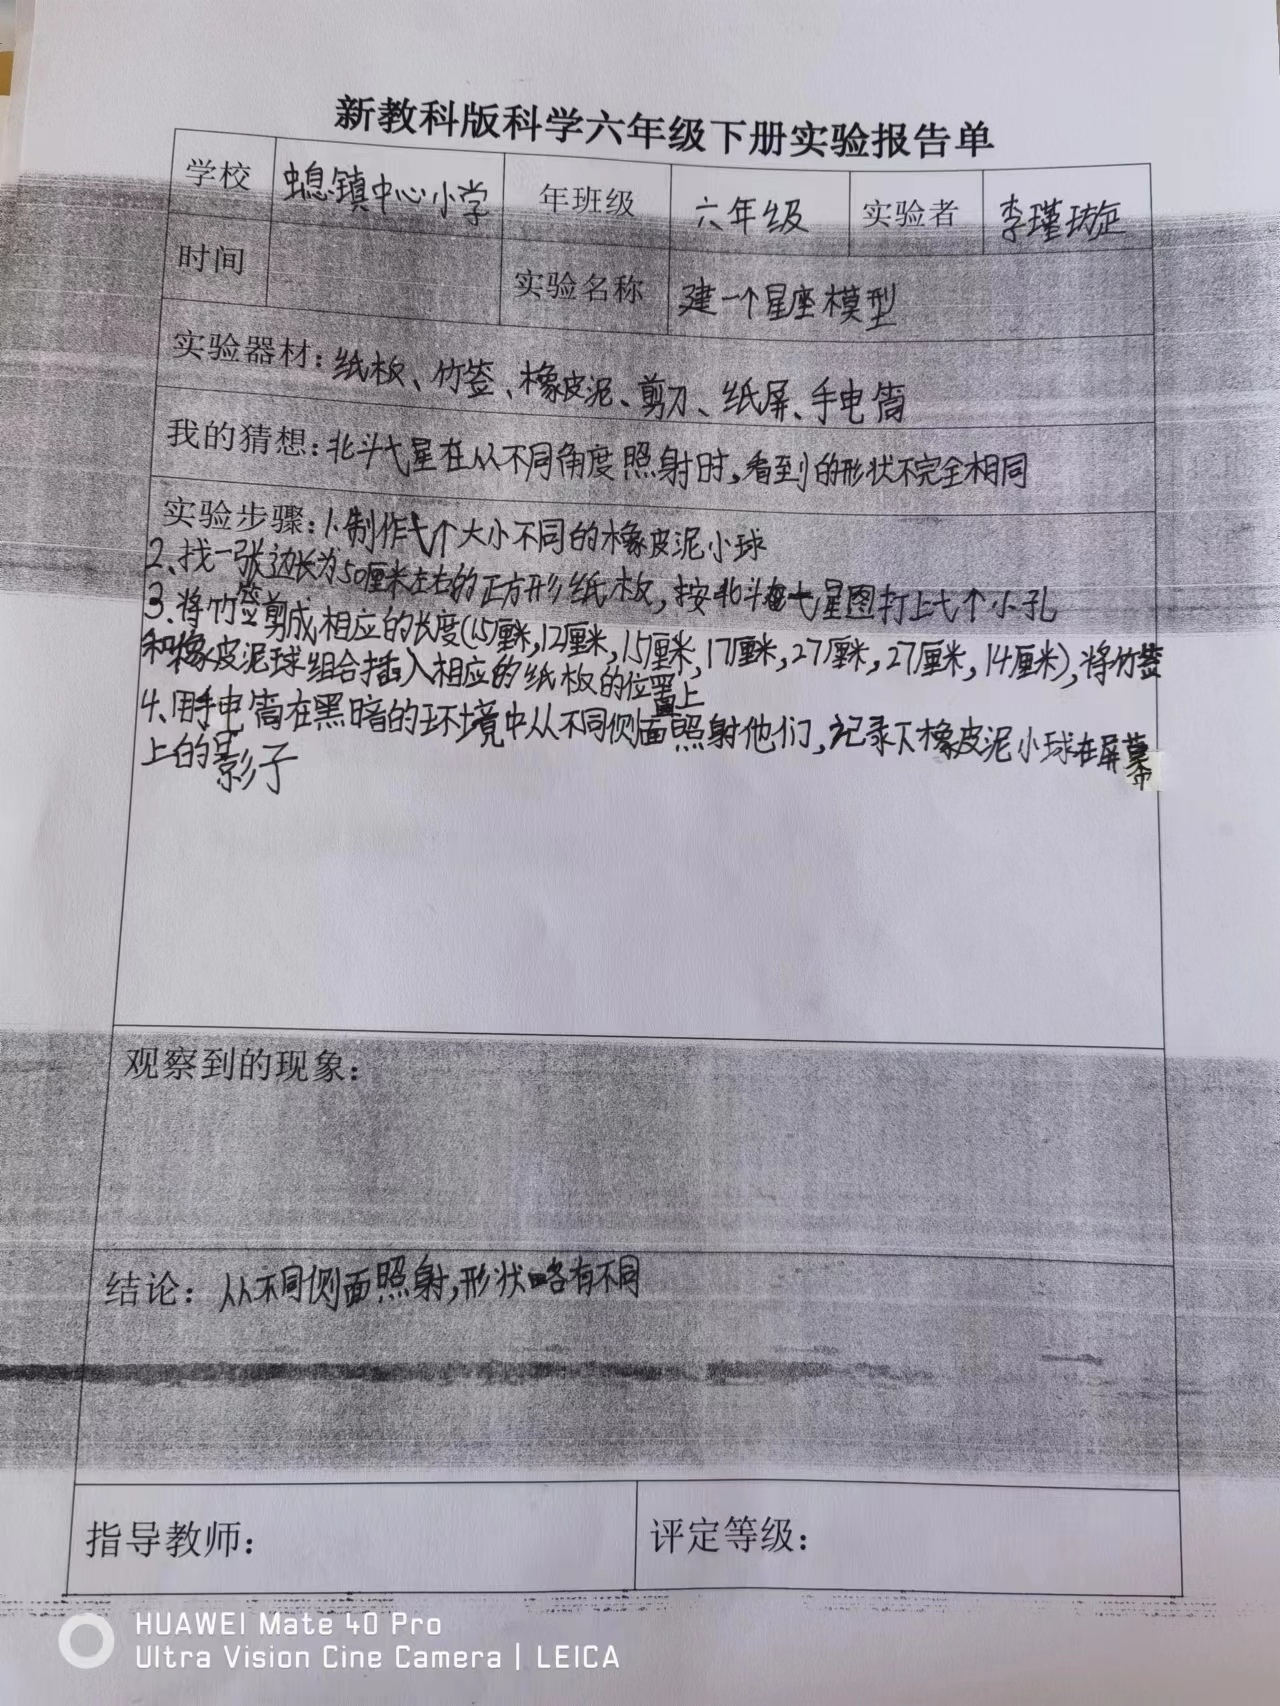 新教科版科学六年级下册实验报告单
学校 螅镇中心小学 年班级 六年级 实验者 李瑾
时间 实验名称 建一个星座模型
实验器材：纸板、竹签、橡皮泥、剪刀、纸屏、手电筒
我的猜想：北斗七星在从不同角度照射时，看到的形状不完全相同
实验步骤：1、制作七个大小不同的橡皮泥小球
2、找一张边长为50厘米左右的正方形纸板，按北斗七星图打上七个小孔
3、将竹签剪成相应的长度(15厘米，12厘米，15厘米，17厘米，27厘米，27厘米，14厘米)，将竹签
和橡皮泥球组合插入相应的纸板的位置上
4、用手电筒在黑暗的环境中从不同侧面照射他们，记录下橡皮泥小球在屏幕
上的影子
观察到的现象：
结论：从不同侧面照射，形状略有不同
指导教师： 评定等级：
HUAWEI Mate 40 Pro
Ultra Vision Cine Camera | LEICA